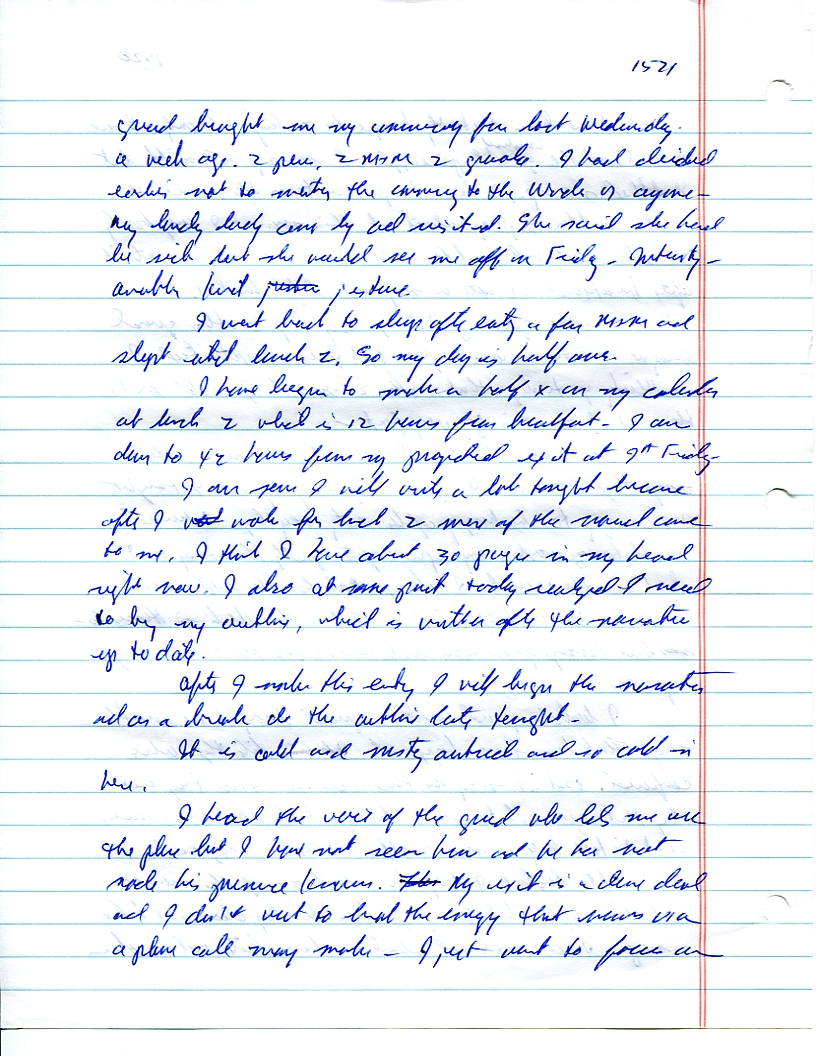 1521
guard brought me my commissary from last Wednesday.
a week ago. 2 pens, 2 M&M 2 granola. I had decided
earlier not to mention the commissary to the Words or anyone
My lovely lady came by and visited. She said she had
be sick but she would see me off on Friday -
kind justice jesture.
I went back to sleep after eating a few M&M and
slept until lunch 2. So my day is half over.
I have begun to make a half x on my calendar
at lunch 2 which is 12 hours from breakfast - I am
down to 42 hours from my projected exit at 9 Friday
I am sure I will write a lot tonight because
after I woke for lunch 2 more of the novel came
to me. I think I have about 30 pages in my head
right now. I also at some point today realized I need
to bring my outline, which is written after the narrative
up to date.
After I make this entry I will begin the narrative
and as a break do the outline late tonight -
It is cold and misty outside and so cold in
here.
I heard the voice of the guard who lets me use
the phone but I have not seen him and he has not
made his presence known. My exit is a done deal
and I don't want to the energy that news via
a phone call may make - I just want to focus on